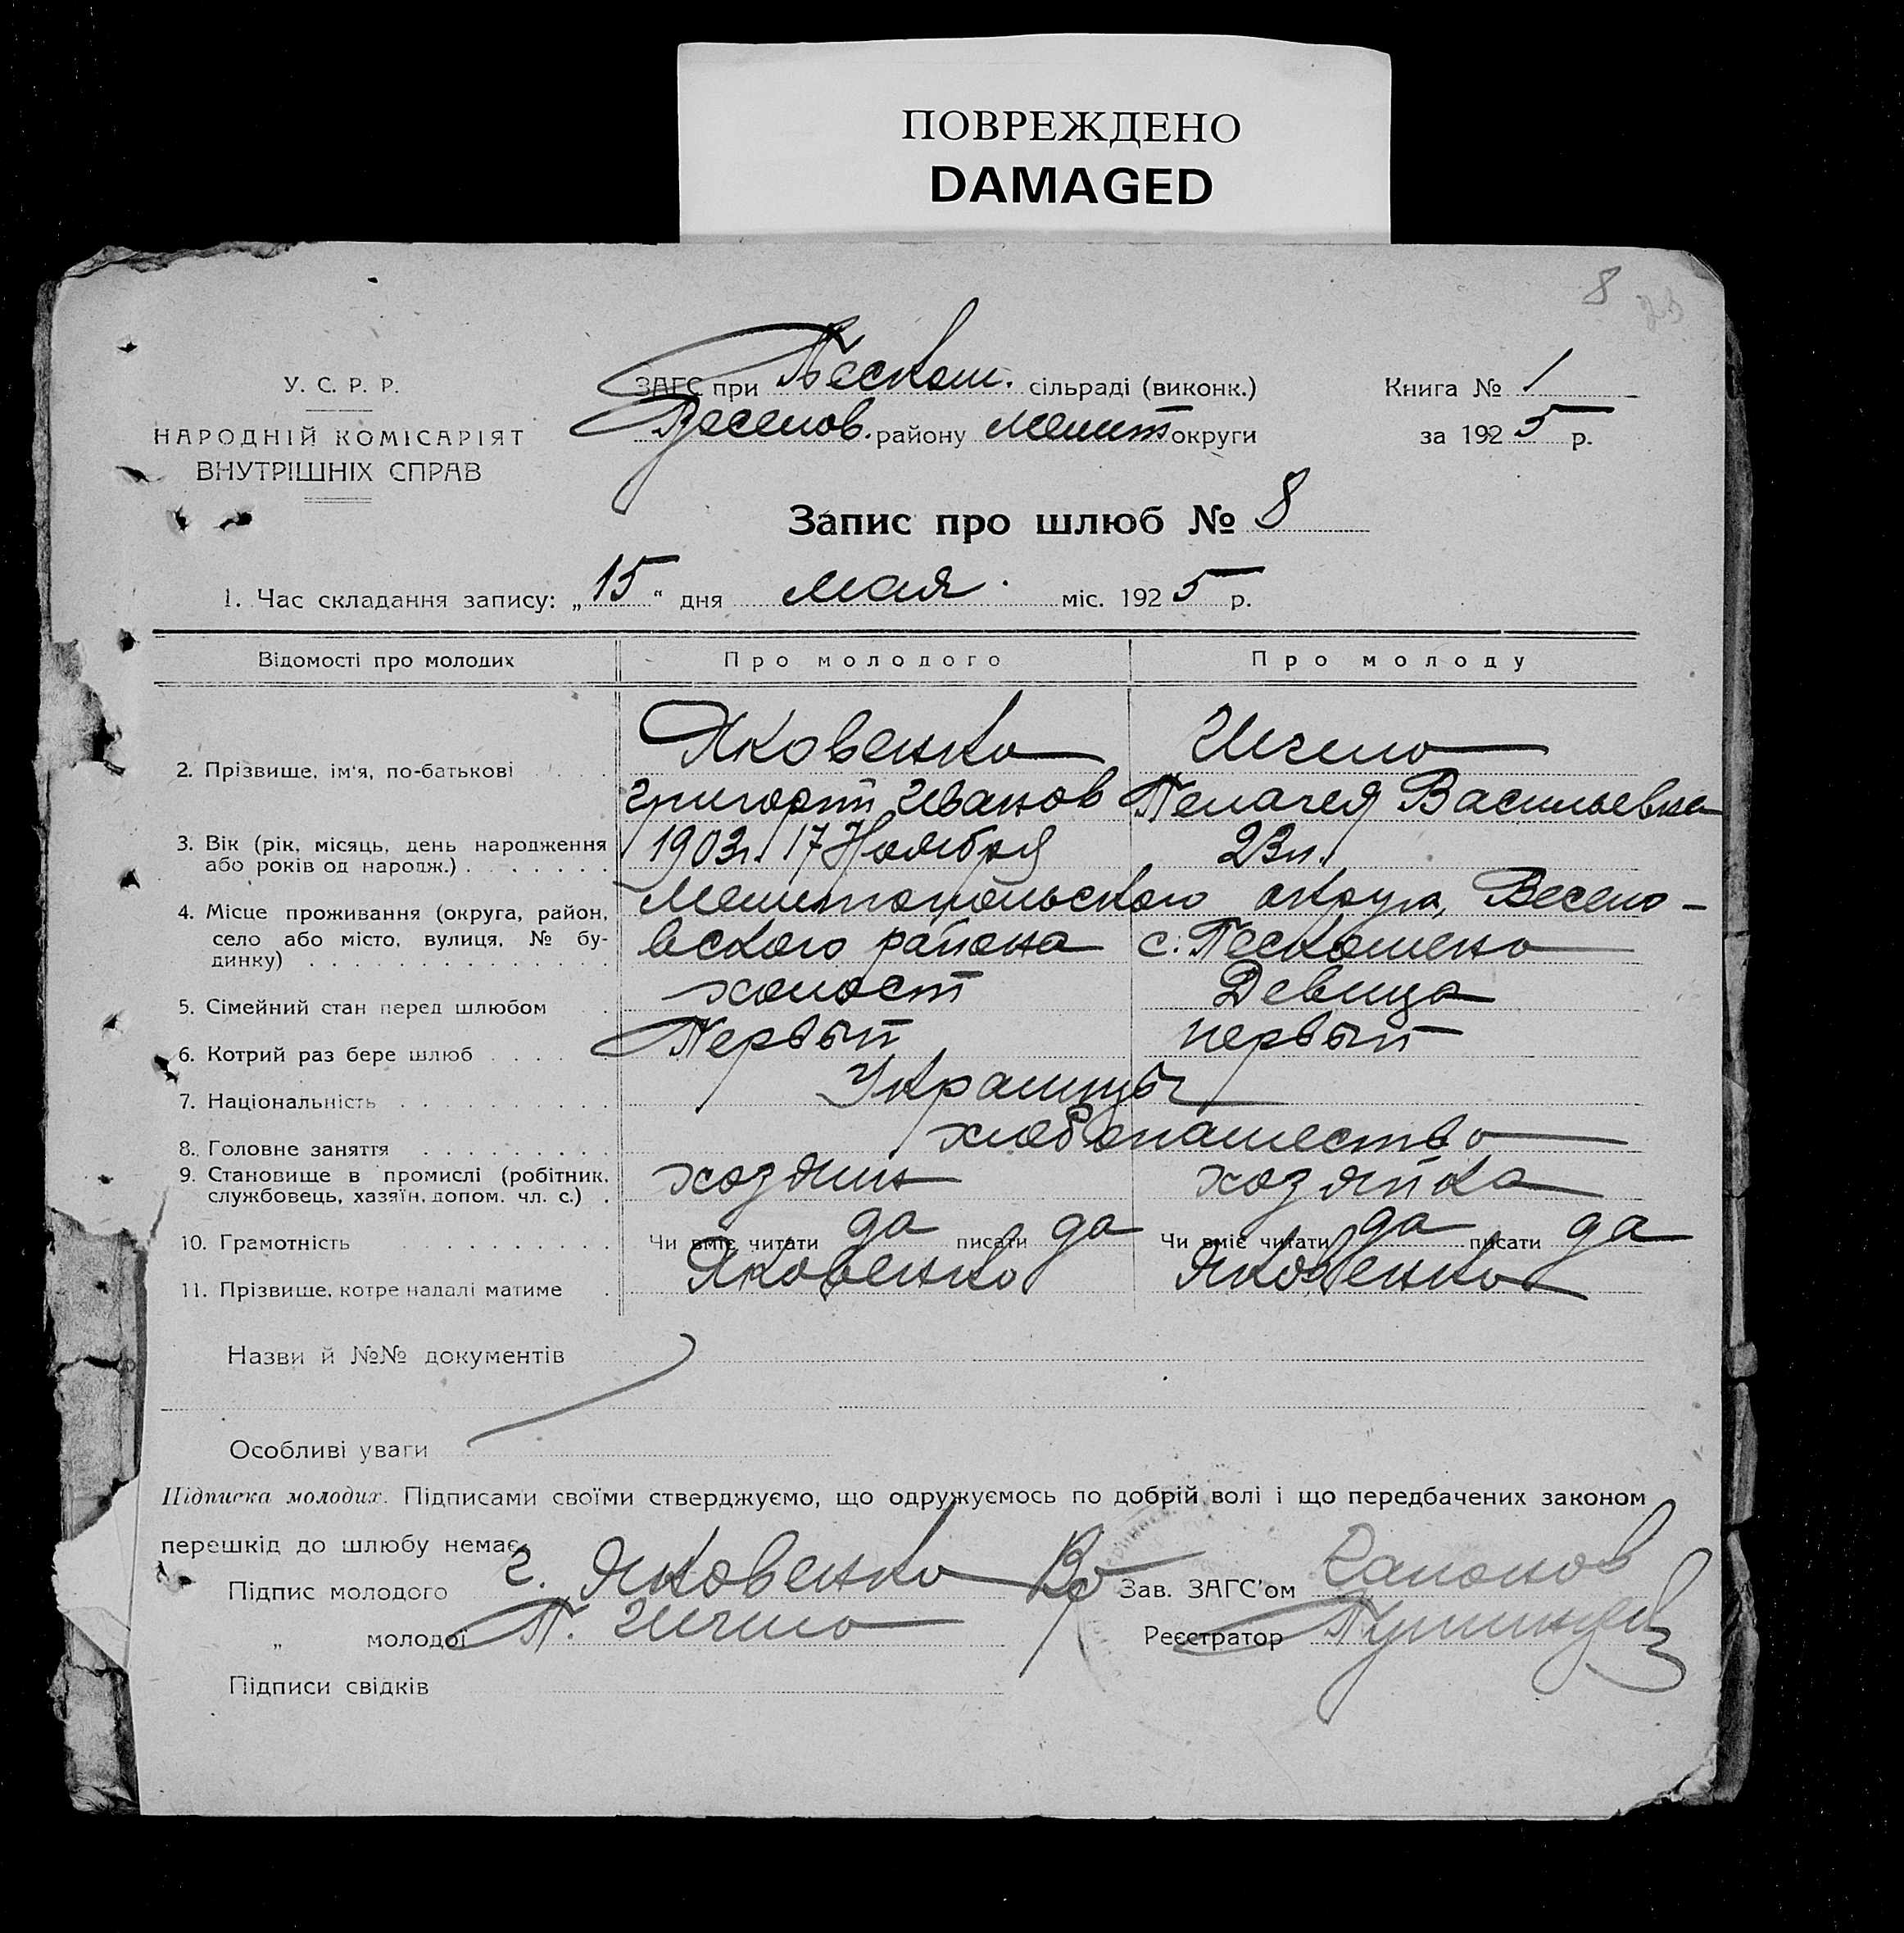 ПОВРЕЖДЕНО
DAMAGED
8
У. С. Р. Р.
НАРОДНІЙ КОМІСАРІЯТ
ВНУТРІШНІХ СПРАВ
ЗАГС при Песком. сільраді (виконк.)
Веселов. району Мелит округи
Книга № 1
за 1925 р.
Запис про шлюб № 8
1. Час складання запису: „15“ дня мая міс. 1925 р.
Відомості про молодих Про молодого Про молоду
2. Прізвище, ім'я, по-батькові Яковенко
Григорий Иванов Пелагея Васильевна
3. Вік (рік, місяць, день народження або років од народж.) 1903 г. 17 Ноября 23 л.
4. Місце проживання (округа, район, Мелитопольского округа, Весело-
село або місто, вулиця, № бу- вского района с.
динку)
5. Сімейний стан перед шлюбом холост Девица
6. Котрий раз бере шлюб Первый первый
7. Національність Украинцы
8. Головне заняття хлебопашество
9. Становище в промислі (робітник, хозяин хозяйка
службовець, хазяїн, допом. чл. с.)
10. Грамотність Чи вміє читати да писати да Чи вміє читати да писати да
11. Прізвище, котре надалі матиме Яковенко Яковенко
Назви й №№ документів
Особливі уваги
Підписка молодих. Підписами своїми стверджуємо, що одружуємось по добрій волі і що передбачених законом
перешкід до шлюбу немає.
Підпис молодого Г. Яковенко Зав. ЗАГС'ом
„ молодої П. Реєстратор
Підписи свідків